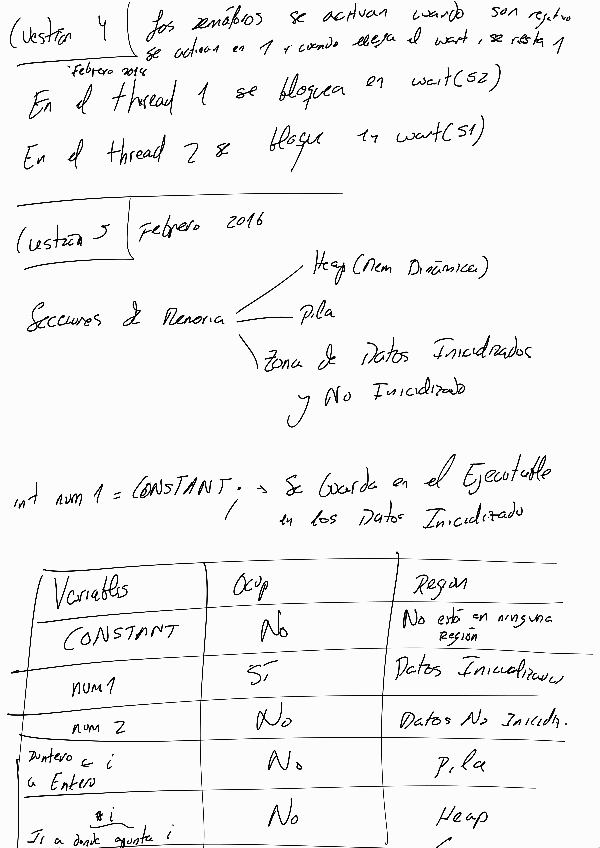 Cuestión 4 Los semáforos se activan cuando son negativo
se activan en 1 y cuando llega el wait, se resta 1
Febrero 2018
En el thread 1 se bloquea en wait(s2)
En el thread 2 se bloque en wait(s1)
Cuestión 5 Febrero 2016
Heap (Mem Dinámica)
Secciones de Memoria Pila
Zona de Datos Inicializados
y No Inicializado
int num1 = CONSTANT; → Se Guarda en el Ejecutable
en los Datos Inicializado
Variables Ocup Region
CONSTANT No No está en ninguna
Región
num1 Sí Datos Inicializados
num 2 No Datos No Inicializ.
Puntero ← i No Pila
a Entero
*i No Heap
Ir a donde apunta i